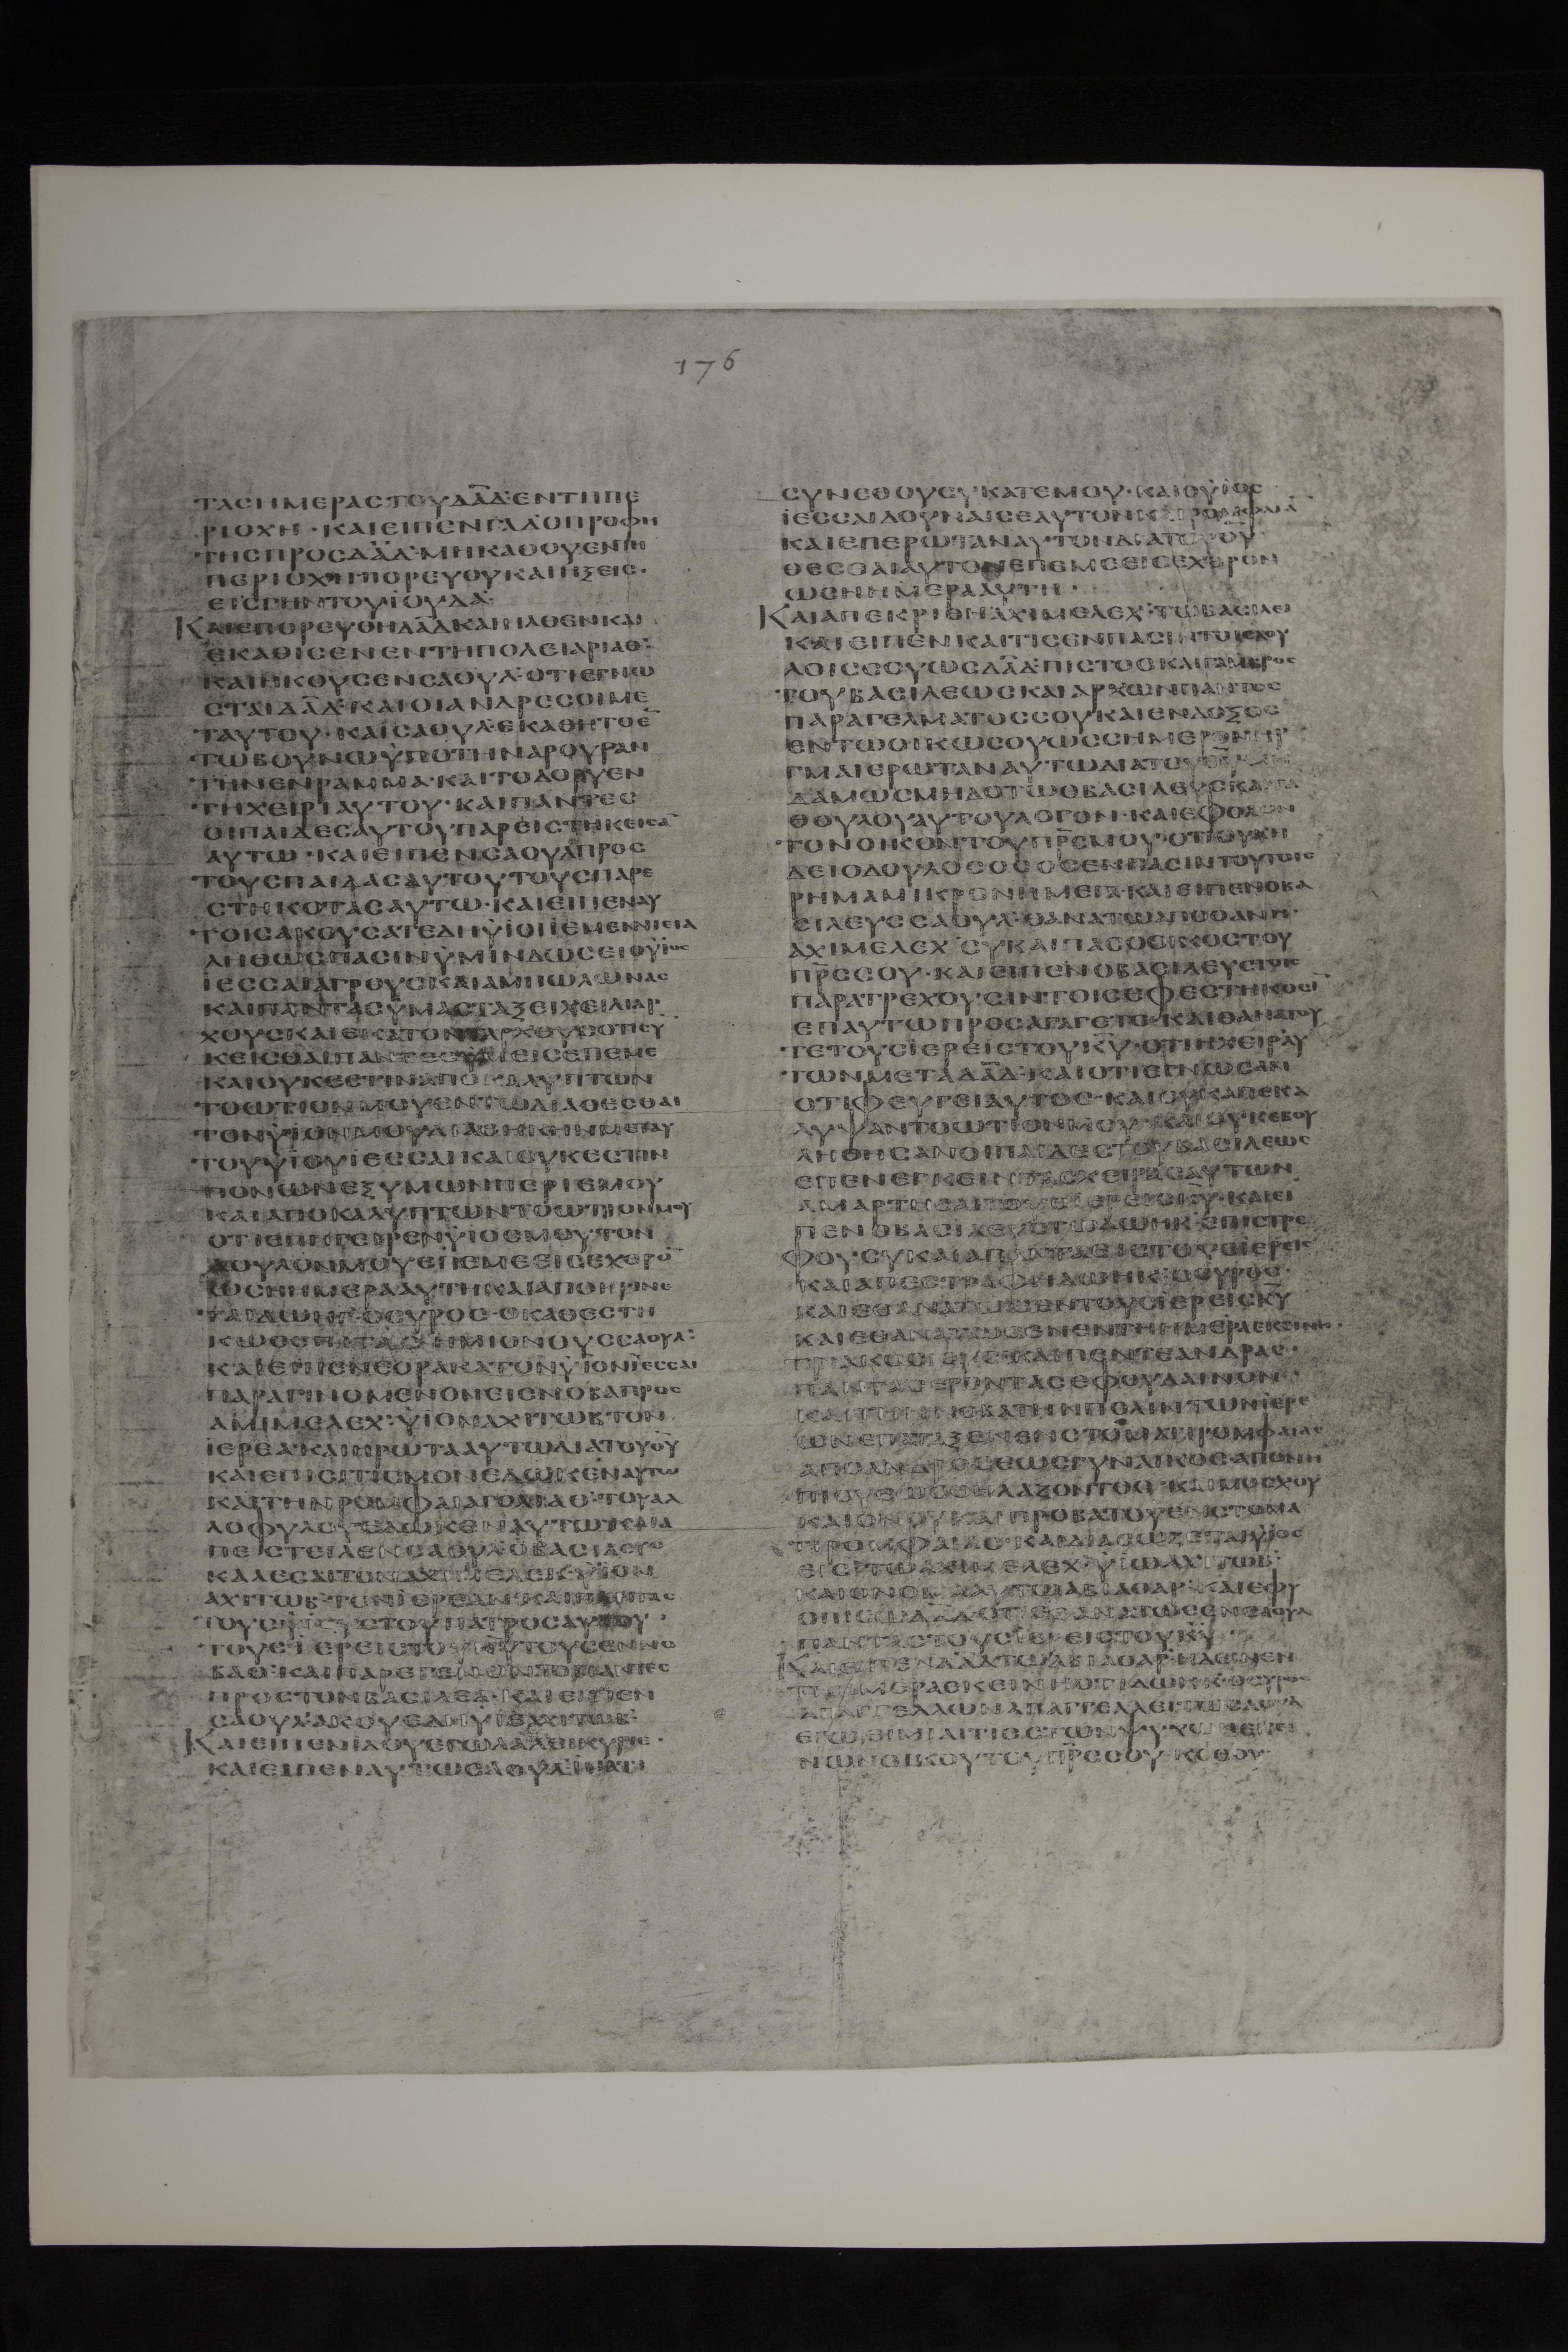 176
ΤΑΣΗΜΕΡΑΣΤΟΥΔΑΔ·ΕΝΤΗΠΕ
ΡΙΟΧΗ·ΚΑΙΕΙΠΕΝΓΑΔΟΠΡΟΦΗ
ΤΗΣΠΡΟΣΔΑΔ·ΜΗΚΑΘΟΥΕΝΤΗ
ΠΕΡΙΟΧΗΠΟΡΕΥΟΥΚΑΙΗΞΕΙΣ·
ΕΙΣΓΗΝΤΟΥΙΟΥΔΑ·
ΚΑΙΕΠΟΡΕΥΘΗΔΑΔΚΑΙΗΛΘΕΝΚΑΙ
ΕΚΑΘΙΣΕΝΕΝΤΗΠΟΛΕΙΑΡΙΑΘ·
ΚΑΙΗΚΟΥΣΕΝΣΑΟΥΛ·ΟΤΙΕΓΝΩ
ΣΤΑΙΔΑΔ·ΚΑΙΟΙΑΝΔΡΕΣΟΙΜΕ
ΤΑΥΤΟΥ·ΚΑΙΣΑΟΥΛ·ΕΚΑΘΗΤΟΕ̅
ΤΩΒΟΥΝΩΫΠΟΤΗΝΑΡΟΥΡΑΝ
ΤΗΝΕΝΡΑΜΜΑ·ΚΑΙΤΟΔΟΡΥΕΝ
ΤΗΧΕΙΡΙΑΥΤΟΥ·ΚΑΙΠΑΝΤΕΣ
ΟΙΠΑΙΔΕΣΑΥΤΟΥΠΑΡΕΙΣΤΗΚΕΙΣΑ̅
ΑΥΤΩ·ΚΑΙΕΙΠΕΝΣΑΟΥΛΠΡΟΣ
ΤΟΥΣΠΑΙΔΑΣΑΥΤΟΥΤΟΥΣΠΑΡΕ
ΣΤΗΚΟΤΑΣΑΥΤΩ·ΚΑΙΕΙΠΕΝΑΥ
ΤΟΙΣΑΚΟΥΣΑΤΕΔΗΫΙΟΙΪΕΜΕΝΝΙΕΙΑ
ΛΗΘΩΣΠΑΣΙΝΫΜΙΝΔΩΣΕΙΟΫΙΟΣ
ΪΕΣΣΑΙΑΓΡΟΥΣΚΑΙΑΜΠΩΛΩΝΑΣ
ΚΑΙΠΑΝΤΑΣΥΜΑΣΤΑΞΕΙΧΕΙΛΙΑΡ
ΧΟΥΣΚΑΙΕΚΑΤΟΝΤΑΡΧΟΥΣΟΤΙΣΥ
ΚΕΙΣΘΑΙΠΑΝΤΕΣΥΜΕΙΣΕΠΕΜΕ
ΚΑΙΟΥΚΕΣΤΙΝΑΠΟΚΑΛΥΠΤΩΝ
ΤΟΩΤΙΟΝΜΟΥΕΝΤΩΔΙΑΘΕΣΘΑΙ
ΤΟΝΫΙΟΝΜΟΥΔΙΑΘΗΚΗΝΜΕΤΑΥ
ΤΟΥΫΙΟΥΙΕΣΣΑΙΚΑΙΟΥΚΕΣΤΙΝ
ΠΟΝΩΝΕΞΥΜΩΝΠΕΡΙΕΜΟΥ
ΚΑΙΑΠΟΚΑΛΥΠΤΩΝΤΟΩΤΙΟΝΜΟΥ
ΟΤΙΕΠΗΓΕΙΡΕΝΫΙΟΣΜΟΥΤΟΝ
ΔΟΥΛΟΝΜΟΥΕΠΕΜΕΕΙΣΕΧΘΡΟ̅
ΩΣΗΗΜΕΡΑΑΥΤΗΚΑΙΑΠΟΚΡΙΝΕ
ΤΑΙΔΩΗΓ·ΟΣΥΡΟΣ·ΟΚΑΘΕΣΤΗ
ΚΩΣΕΠΙΤΑΣΗΜΙΟΝΟΥΣΣΑΟΥΛ·
ΚΑΙΕΙΠΕΝΕΟΡΑΚΑΤΟΝΫΙΟΝΪΕΣΣΑΙ
ΠΑΡΑΓΙΝΟΜΕΝΟΝΕΙΣΝΟΒΑΠΡΟΣ
ΑΜΙΜΕΛΕΧ·ΫΙΟΝΑΧΙΤΩΒΤΟΝ
ΪΕΡΕΑ·ΚΑΙΗΡΩΤΑΑΥΤΩΔΙΑΤΟΥΘΥ
ΚΑΙΕΠΙΣΙΤΙΣΜΟΝΕΔΩΚΕΝΑΥΤΩ
ΚΑΙΤΗΝΡΟΜΦΑΙΑΓΟΛΙΑΘ·ΤΟΥΑΛ
ΛΟΦΥΛΟΥΕΔΩΚΕΝΑΥΤΩ·ΚΑΙΑ
ΠΕΣΤΕΙΛΕΝΣΑΟΥΛ·ΟΒΑΣΙΛΕΥΣ
ΚΑΛΕΣΑΙΤΟΝΑΧΙΜΕΛΕΚ·ΫΙΟΝ
ΑΧΙΤΩΒ·ΤΟΝΪΕΡΕΑΝ·ΚΑΙΠΑΝΤΑΣ
ΤΟΥΣΫΙΟΥΣΤΟΥΠΑΤΡΟΣΑΥΤΟΥ·
ΤΟΥΣΪΕΡΕΙΣΤΟΥΚΥΤΟΥΣΕΝΝΟ
ΒΑΘ·ΚΑΙΠΑΡΕΓΕΝΟΝΤΟΠΑΝΤΕΣ
ΠΡΟΣΤΟΝΒΑΣΙΛΕΑ·ΚΑΙΕΙΠΕΝ
ΣΑΟΥΛ·ΑΚΟΥΕΔΗΫΙΕΑΧΙΤΩΒ·
ΚΑΙΕΙΠΕΝΙΔΟΥΕΓΩΛΑΛΕΙΚΥΡΙΕ·
ΚΑΙΕΙΠΕΝΑΥΤΩΣΑΟΥΛ·ΪΝΑΤΙ
ΣΥΝΕΘΟΥΣΥΚΑΤΕΜΟΥ·ΚΑΙΟΫΙΟΣ
ΪΕΣΣΑΙΔΟΥΝΑΙΣΕΑΥΤΟΝΚΑΙΡΟΜΦΑΙΑ
ΚΑΙΕΠΕΡΩΤΑΝΑΥΤΟΝΔΙΑΤΟΥΘΥ
ΘΕΣΘΑΙΑΥΤΟΝΕΠΕΜΕΕΙΣΕΧΘΡΟΝ
ΩΣΗΗΜΕΡΑΑΥΤΗ·
ΚΑΙΑΠΕΚΡΙΘΗΑΧΙΜΕΛΕΧ·ΤΩΒΑΣΙΛΕΙ
ΚΑΙΕΙΠΕΝΚΑΙΤΙΣΕΝΠΑΣΙΝΤΟΙΣΔΟΥ
ΛΟΙΣΣΟΥΩΣΔΑΔ·ΠΙΣΤΟΣΚΑΙΓΑΜΒΡΟΣ
ΤΟΥΒΑΣΙΛΕΩΣΚΑΙΑΡΧΩΝΠΑΝΤΟΣ
ΠΑΡΑΓΕΛΜΑΤΟΣΣΟΥΚΑΙΕΝΔΟΞΟΣ
ΕΝΤΩΟΙΚΩΣΟΥΩΣΣΗΜΕΡΟΝΗΡ
ΓΜΑΙΕΡΩΤΑΝΑΥΤΩΔΙΑΤΟΥΘΥ
ΔΑΜΩΣΜΗΔΟΤΩΟΒΑΣΙΛΕΥΣΚΑΤΑ
ΘΟΥΛΟΥΑΥΤΟΥΛΟΓΟΝ·ΚΑΙΕΦΟΛΟΝ
ΤΟΝΟΙΚΟΝΤΟΥΠΡΣΜΟΥ·ΟΤΙΟΥΚΗ
ΔΕΙΟΔΟΥΛΟΣΟΣΟΣΕΝΠΑΣΙΝΤΟΥΤΟΙΣ
ΡΗΜΑΜΙΚΡΟΝΗΜΕΓΑ·ΚΑΙΕΙΠΕΝΟΒΑ
ΣΙΛΕΥΣΣΑΟΥΛ·ΘΑΝΑΤΩΑΠΟΘΑΝΗ·
ΑΧΙΜΕΛΕΧ·ΣΥΚΑΙΠΑΣΟΟΙΚΟΣΤΟΥ
ΠΡΣΣΟΥ·ΚΑΙΕΙΠΕΝΟΒΑΣΙΛΕΥΣΤΟΙΣ
ΠΑΡΑΤΡΕΧΟΥΣΙΝ·ΤΟΙΣΕΦΕΣΤΗΚΟΣΙ̅
ΕΠΑΥΤΩΠΡΟΣΑΓΑΓΕΤΕ·ΚΑΙΘΑΝΑΤΟΥ
ΤΕΤΟΥΣΙΕΡΕΙΣΤΟΥΚΥ·ΟΤΙΗΧΕΙΡΑΥ
ΤΩΝΜΕΤΑΔΑΔ·ΚΑΙΟΤΙΕΓΝΩΣΑΝ
ΟΤΙΦΕΥΓΕΙΑΥΤΟΣ·ΚΑΙΟΥΚΑΠΕΚΑ
ΛΥΨΑΝΤΟΩΤΙΟΝΜΟΥ·ΚΑΙΟΥΚΕΒΟΥ
ΛΗΘΗΣΑΝΟΙΠΑΙΔΕΣΤΟΥΒΑΣΙΛΕΩΣ
ΕΠΕΝΕΓΚΕΙΝΤΑΣΧΕΙΡΑΣΑΥΤΩΝ
ΑΜΑΡΤΗΣΑΙΤΟΥΣΙΕΡΕΙΣΚΥ·ΚΑΙΕΙ
ΠΕΝΟΒΑΣΙΛΕΥΣΤΩΔΩΗΚ·ΕΠΙΣΤΡΕ
ΦΟΥΣΥΚΑΙΑΠΑΝΤΑΕΙΣΤΟΥΣΪΕΡΕΙΣ
ΚΑΙΑΠΕΣΤΡΑΦΗΔΩΗΚ·ΟΣΥΡΟΣ·
ΚΑΙΕΘΑΝΑΤΩΣΕΝΤΟΥΣΪΕΡΕΙΣΚΥ
ΚΑΙΕΘΑΝΑΤΩΣΕΝΕΝΤΗΗΜΕΡΑΕΚΕΙΝΗ·
ΤΡΙΑΚΟΣΙΟΥΣ·ΚΑΙΠΕΝΤΕΑΝΔΡΑΣ·
ΠΑΝΤΑΣΕΡΟΝΤΑΣΕΦΟΥΔΛΙΝΟΝ·
ΚΑΙΤΗΝΝΟΒΑΤΗΝΠΟΛΙΝΤΩΝΪΕΡΕ
ΩΝΕΠΑΤΑΞΕΝΕΝΣΤΟΜΑΤΙΡΟΜΦΑΙΑΣ
ΑΠΟΑΝΔΡΟΣΕΩΣΓΥΝΑΙΚΟΣ·ΑΠΟΝΗ
ΠΙΟΥΕΩΣΘΗΛΑΖΟΝΤΟΣ·ΚΑΙΜΟΣΧΟΥ
ΚΑΙΟΝΟΥΚΑΙΠΡΟΒΑΤΟΥΕΝΣΤΟΜΑ
ΤΙΡΟΜΦΑΙΑΣ·ΚΑΙΔΙΑΣΩΖΕΤΑΙΫΙΟΣ
ΕΙΣΤΩΑΧΙΜΕΛΕΧ·ΫΙΩΑΧΙΤΩΒ·
ΚΑΙΟΝΟΜΑΑΥΤΩΑΒΙΑΘΑΡ·ΚΑΙΕΦΥ
ΟΠΙΣΩΔΑΔ·ΟΤΙΕΘΑΝΑΤΩΣΕΝΣΑΟΥΛ
ΠΑΝΤΑΣΤΟΥΣΪΕΡΕΙΣΤΟΥΚΥ·
ΚΑΙΕΙΠΕΝΔΑΔΤΩΑΒΙΑΘΑΡ·ΗΔΕΙΝΕΝ
ΤΗΗΜΕΡΑΕΚΕΙΝΗΟΤΙΔΩΗΚ·ΟΣΥΡΟΣ
ΑΠΑΓΓΕΛΛΩΝΑΠΑΓΓΕΛΛΕΙΤΩΣΑΟΥΛ
ΕΓΩΕΙΜΙΑΙΤΙΟΣΤΩΝΨΥΧΩΝ
ΝΩΝΟΙΚΟΥΤΟΥΠΡΣΣΟΥ·ΚΑΘΟΥ